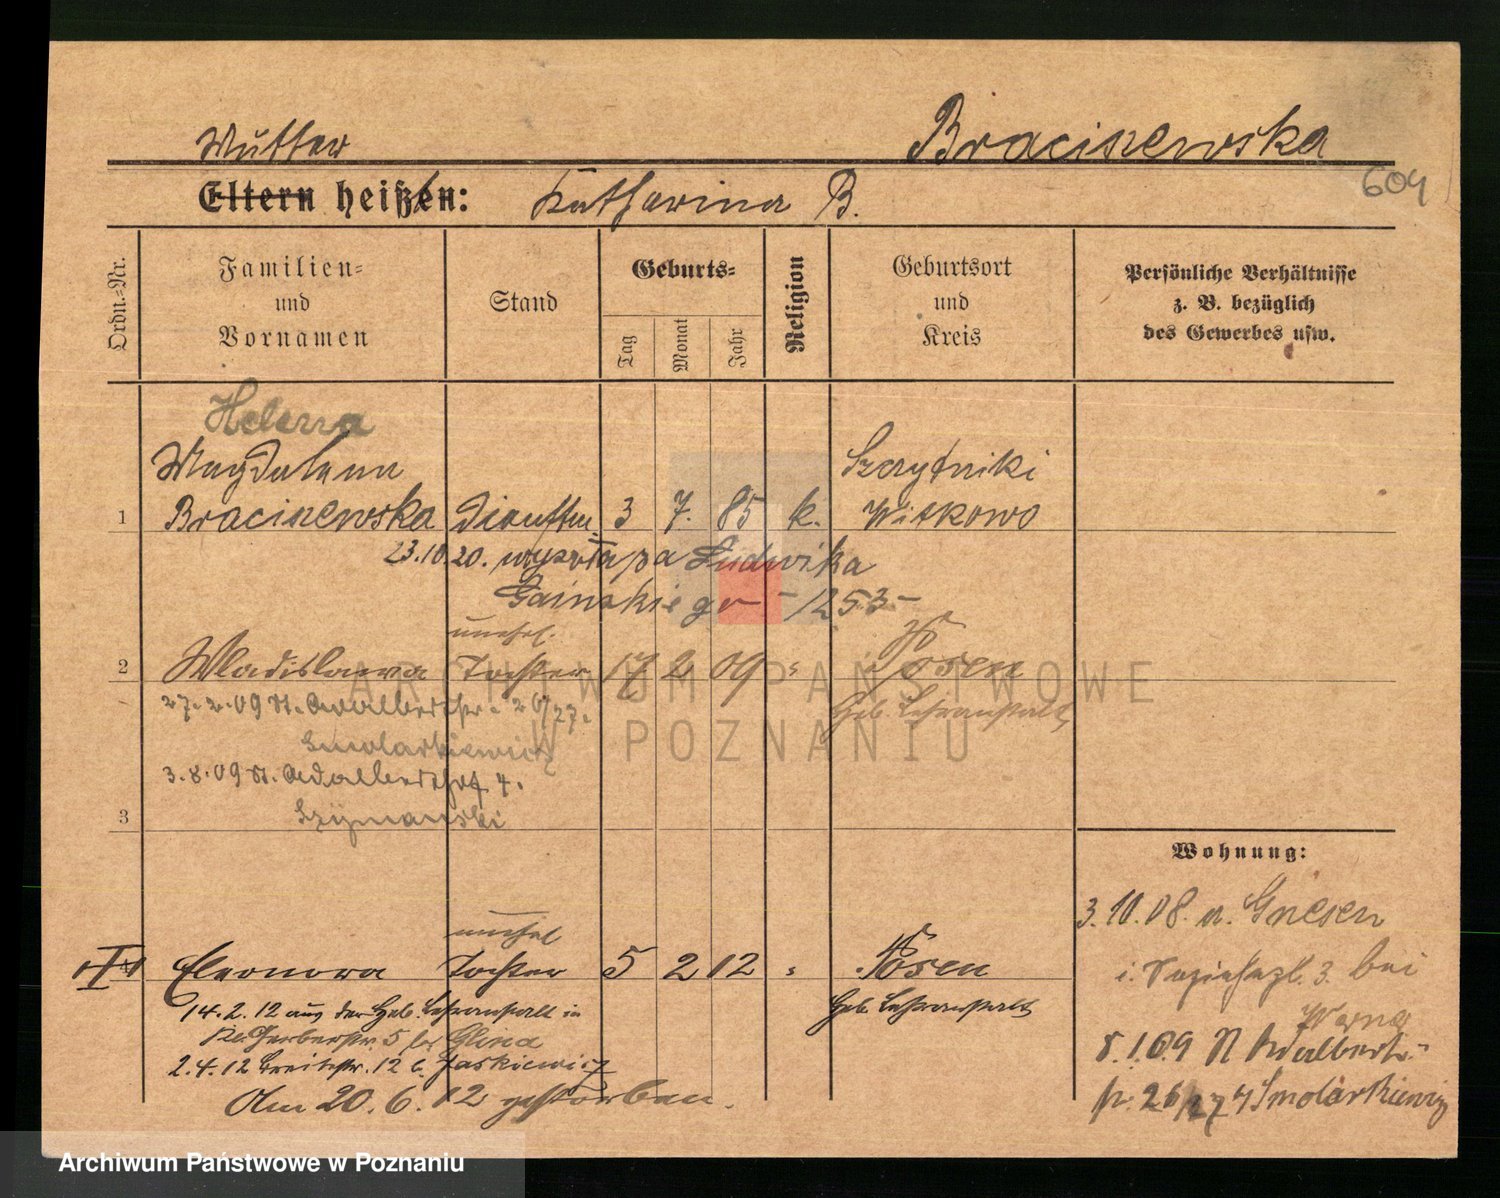 Mutter
Braciszewska
Eltern heißen: Katharina B.
604
Ordn.-Nr.
Familien-
und
Vornamen
Stand
Geburts-
Tag
Monat
Jahr
Religion
Geburtsort
und
Kreis
Persönliche Verhältnisse
z. B. bezüglich
des Gewerbes usw.
Helena
Magdalena
Szczytniki
1 Braciszewska 3 7. 85 k. Witkowo
23.10.20. wyszła za Ludwika
Gainskiego - 1253 -
unehel.
2 Wladislawa Tochter 17 2 09 Posen
Geb. Lehranstalt
27.2.09 St. Adalbertstr. 26/27.
Smolarkiewicz
3.8.09 St. Adalbertstr. 4.
3 Szymanski
Wohnung:
3.10.08. v. Gnesen
bei
Warna
8.1.09 St Adalbert-
str. 26/27 Smolarkiewicz
unehel
Eleonora Tochter 5 2 12 Posen
14.2.12 aus der Geb. Lehranstalt in Geb. Lehranstalt
Kl. Gerberstr. 5 bei Glina
2.4.12 Breitestr. 12 b. Jaskiewicz
Am 20.6.12 gestorben.
ARCHIWUM PAŃSTWOWE
W POZNANIU
Archiwum Państwowe w Poznaniu